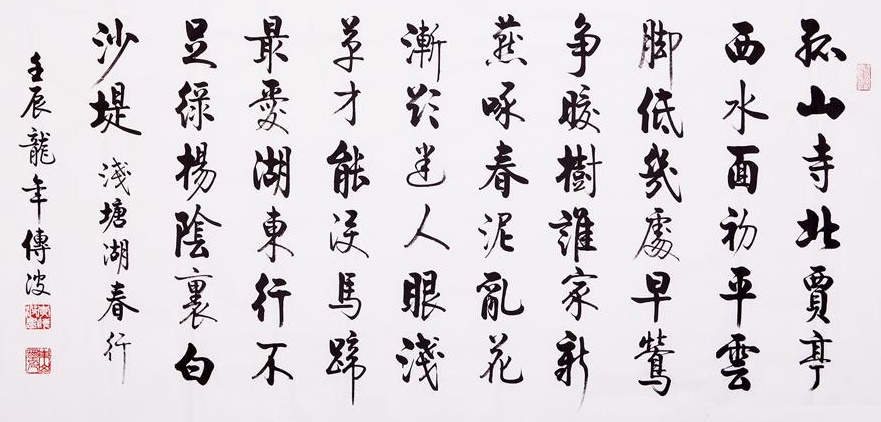 孤山寺北賈亭
西水面初平雲
脚低幾處早鶯
争暖樹誰家新
燕啄春泥亂花
漸欲迷人眼淺
草才能沒馬蹄
最愛湖東行不
足綠楊陰裏白
沙堤 淺塘湖春行
壬辰龍年傳波